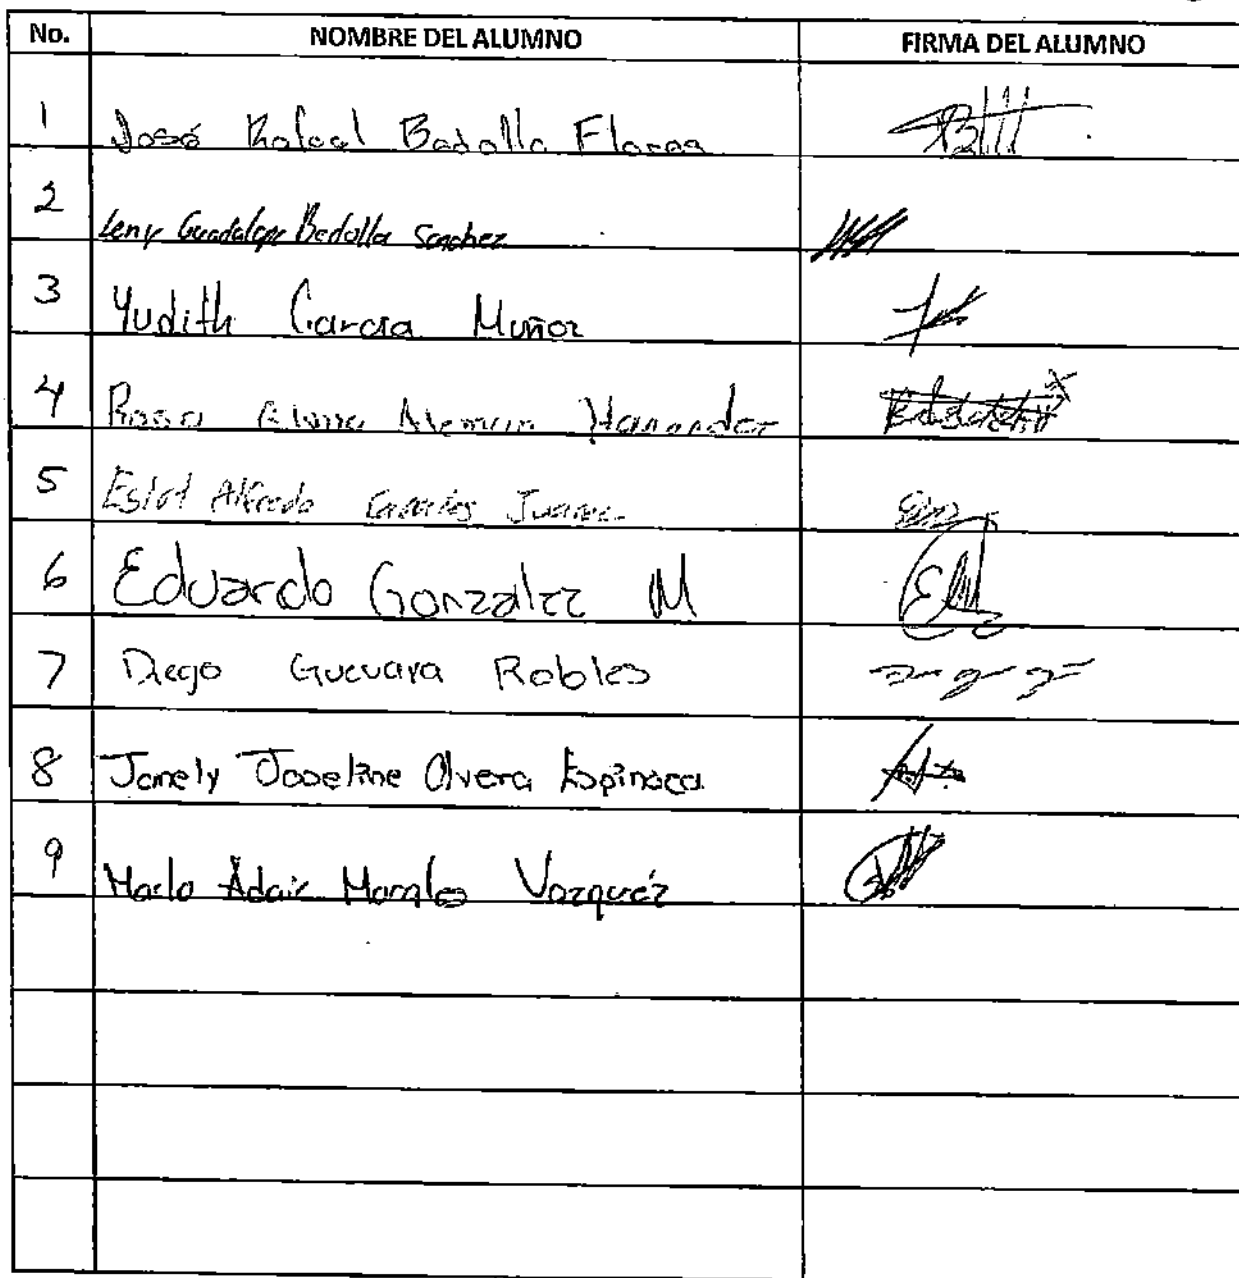 No. NOMBRE DEL ALUMNO FIRMA DEL ALUMNO
1 José Rafael Badolla Flores
2 Leny Guadalupe Bedolla Sanchez
3 Yudith Garcia Muñoz
4 Rosa Elvira Aleman Hernandez
5 Alfredo Juarez
6 Eduardo Gonzalez M
7 Diego Guevara Robles
8 Janely Joseline Olvera Espinoza
9 Adair Morales Vazquéz